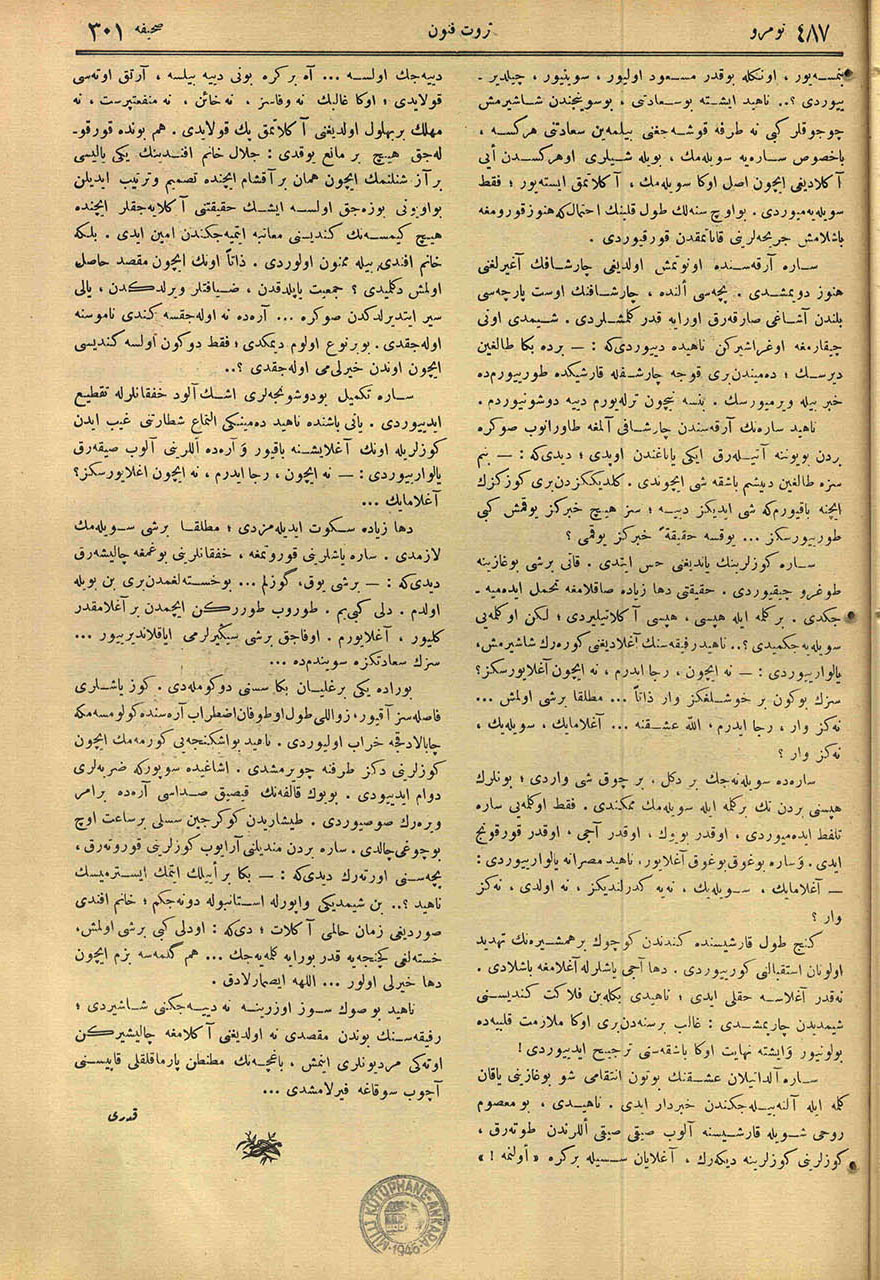 ٤٨٧ نومرو
ثروت فنون
صحیفه ٣٠١
ینمسه‌یور ، اونکله بوقدر مسعود اولیور ، سوینیور ، چیلدیر ـ
ییوردی ؟.. ناهید ایشته بوسعادتی ، بوسوینجندن شاشیرمش
چوجوقلر کبی نه طرفه قوشه‌جغنی بیلمه‌ین سعادتی هرکسه ،
باخصوص ساره‌یه سویله‌مك ، بویله شیلری اوهرکسدن أیی
آکلادیغی ایچون اصل اوکا سویله‌مك ، آکلاتمق ایسته‌یور ؛ فقط
سویله‌یه‌میوردی . بواوچ سنه‌لك طول قلبنك احتمال‌که هنوز قورومغه
باشلامش جریحه‌لرینی قاناتمقدن قورقیوردی .
ساره آرقه‌سنده اونوتمش اولدیغی چارشافك آغیرلغنی
هنوز دویمشدی . پچه‌سی ألنده ، چارشافنك اوست پارچه‌سی
بلندن آشاغی صارقه‌رق اورایه قدر کلمشلردی . شیمدی اونی
چیقارمغه اوغراشیرکن ناهیده دییوردی‌که : — برده بکا طالغین
دیرسك ؛ ده‌میندن‌بری قوجه چارشفله قارشیکده طورییورم‌ده
خبر بیله ویرمیورسك . بنسه نیچون ترله‌یورم دییه دوشونیوردم .
ناهید ساره‌نك آرقه‌سندن چارشافی آلمغه طاورانوب صوکره
بردن بویوننه آتیله‌رق ایکی یاناغندن اوپدی ؛ دیدی‌که : — بنم
سزه طالغین دییشم باشقه شی ایچوندی . کلدیککزدن‌بری کوزکزك
ایچنه باقیورم‌که شی ایدیکز دییه ؛ سز هیچ خبرکز یوقمش کبی
طورییورسکز ... یوقسه حقیقةً خبرکز یوقمی ؟
ساره کوزلرینك یاندیغنی حس ایتدی . قاتی برشی بوغازینه
طوغرو چیقیوردی . حقیقتی دها زیاده صاقلامغه تحمل ایده‌میه ـ
جکدی . برکلمه ایله هپسی ، هپسی آکلاتیلیردی ؛ لکن اوکله‌یی
سویله‌یه‌جکمیدی ؟.. ناهید رفیقه‌سنك آغلادیغنی کوره‌رك شاشیرمش،
یالوارییوردی : — نه ایچون ، رجا ایدرم ، نه ایچون آغلایورسکز؟
سزك بوکون بر خوشلغکز وار ذاتاً ... مطلقا برشی اولمش ...
نه‌کز وار ، رجا ایدرم ، الله عشقنه ... آغلامایك ، سویله‌یك ،
نه‌کز وار ؟
ساره‌ده سویله‌نه‌جك بر دکل ، بر چوق شی واردی ؛ بونلرك
هپسنی بردن تك برکله ایله سویله‌مك ممکندی . فقط اوکله‌یی ساره
تلفظ ایده‌میوردی ، اوقدر بویوك ، اوقدر آجی ، اوقدر قورقونج
ایدی . وساره بوغوق بوغوق آغلایور، ناهید مصرانه یالوارییوردی :
— آغلامایك ، سویله‌یك ، نه‌یه کدرلندیکز ، نه اولدی ، نه‌کز
وار ؟
کنج طول قارشیسنده کندندن کوچوك برهمشیره‌نك تهدید
اولونان استقبالنی کورییوردی . دها آجی یاشلرله آغلامغه باشلادی .
نه‌قدر آغلاسه حقلی ایدی ؛ ناهیدی بکله‌ین فلاکت کندیسنی
شیمدیدن چارپمشدی : غالب برسنه‌دن‌بری اوکا ملازمت قلبیه‌ده
بولونیور وایشته نهایت اوکا باشقه‌سنی ترجیح ایدییوردی !
ساره آلدانیلان عشقنك بوتون انتقامی شو بوغازینی یاقان
کله ایله آلنه‌بیله‌جکندن خبردار ایدی . ناهیدی ، بو معصوم
روحی شویله قارشیسنه آلوب صیقی صیقی أللرندن طوته‌رق ،
کوزلرینی کوزلرینه دیکه‌رك ، آغلایان سسیله برکره « أولنمه ! »
دییه‌جك اولسه ... آه برکره بونی دییه بیلسه ، آرتق اوته‌سی
قولایدی ؛ اوکا غالبك نه وفاسز ، نه خائن ، نه منفعتپرست ، نه
مهلك بر بهلول اولدیغنی آکلاتمق پك قولایدی . هم بونده قورقو ـ
له‌جق هیچ بر مانع یوقدی : جلال خانم افندینك یکی یالیسی
براز شنلنمك ایچون همان بر آقشام ایچنده تصمیم وترتیب ایدیلن
بواویونی بوزه‌جق اولسه ایشك حقیقتنی آکلایه‌جقلر ایچنده
هیچ کیمسه‌نك کندینی معاتبه ایتمیه‌جکندن امین ایدی . بلکه
خانم افندی بیله ممنون اولوردی . ذاتاً اونك ایچون مقصد حاصل
اولمش دکلمیدی ؟ جمعیت یاپیلدقدن ، ضیافتلر ویرلدکدن ، یالی
سیر ایتدیرلدکدن صوکره ... آره‌ده نه اوله‌جقسه کندی ناموسنه
اوله‌جقدی . بو برنوع اولوم دیمکدی ؛ فقط دوکون اولسه کندیسی
ایچون اوندن خیرلی‌می اوله‌جقدی ؟..
ساره تکمیل بودوشونجه‌لری اشك آلود خفقانلرله تقطیع
ایدییوردی . یانی باشنده ناهید ده‌مینکی التماع شطارتنی غیب ایدن
کوزلریله اونك آغلایشنه باقیور وآره‌ده أللرینی آلوب صیقه‌رق
یالوارییوردی : — نه ایچون ، رجا ایدرم ، نه ایچون اغلایورسکز؟
آغلامایك ...
دها زیاده سکوت ایدیله‌مزدی ؛ مطلقا برشی سویله‌مك
لازمدی . ساره یاشلرینی قوروتمغه ، خفقانلرینی بوغمغه چالیشه‌رق
دیدی‌که : — برشی یوق، گوزلم ... بوخسته‌لغمدن‌بری بن بویله
اولدم . دلی کبی‌یم . طوروب طوررکن ایچمدن بر آغلامقدر
کلیور ، آغلایورم . اوفاجق برشی سیکیرلرمی ایاقلاندیرییور ...
سزك سعادتکزه سویندم‌ده ...
بوراده یکی برغلیان بکا سسنی دوکومله‌دی . کوز یاشلری
فاصله‌سز آقیور، زواللی طول اوطوفان اضطراب آره‌سنده کولومسه‌مکه
چابالادقجه خراب اولیوردی . ناهید بواشکنجه‌یی کورمه‌مك ایچون
کوزلرینی دکز طرفنه چویرمشدی . اشاغیده سوپورکه ضربه‌لری
دوام ایدییودی . بویوك قالفه‌نك قیصیق صداسی آره‌ده برامر
ویره‌رك صوصیوردی . طیشاریدن کوکرجین سسلی برساعت اوچ
بوچوغی چالدی . ساره بردن مندیلنی آرایوب کوزلرینی قوروته‌رق ،
پچه‌سنی اورته‌رك دیدی‌که : — بکا بر أییلك ایتمك ایسترمیسك
ناهید ؟.. بن شیمدیکی واپورله استانبوله دونه‌جکم ؛ خانم افندی
صوردیغی زمان حالمی آکلات ؛ دی‌که : اودلی کبی برشی اولمش،
خسته‌لغی کچنجه‌یه قدر بورایه کلمه‌یه‌جك ... هم گلمه‌سه بزم ایچون
دها خیرلی اولور ... اللهه ایصمارلادق .
ناهید بو صوك سوز اوزرینه نه دییه‌جکنی شاشیردی ؛
رفیقه‌سنك بوندن مقصدی نه اولدیغنی آکلامغه چالیشیرکن
اوته‌کی مردیونلری اینمش ، باغچه‌نك مطنطن پارماقلقلی قاپیسنی
آچوب سوقاغه فیرلامشدی ...
قدری
MİLLİ KÜTÜPHANE-ANKARA
1946